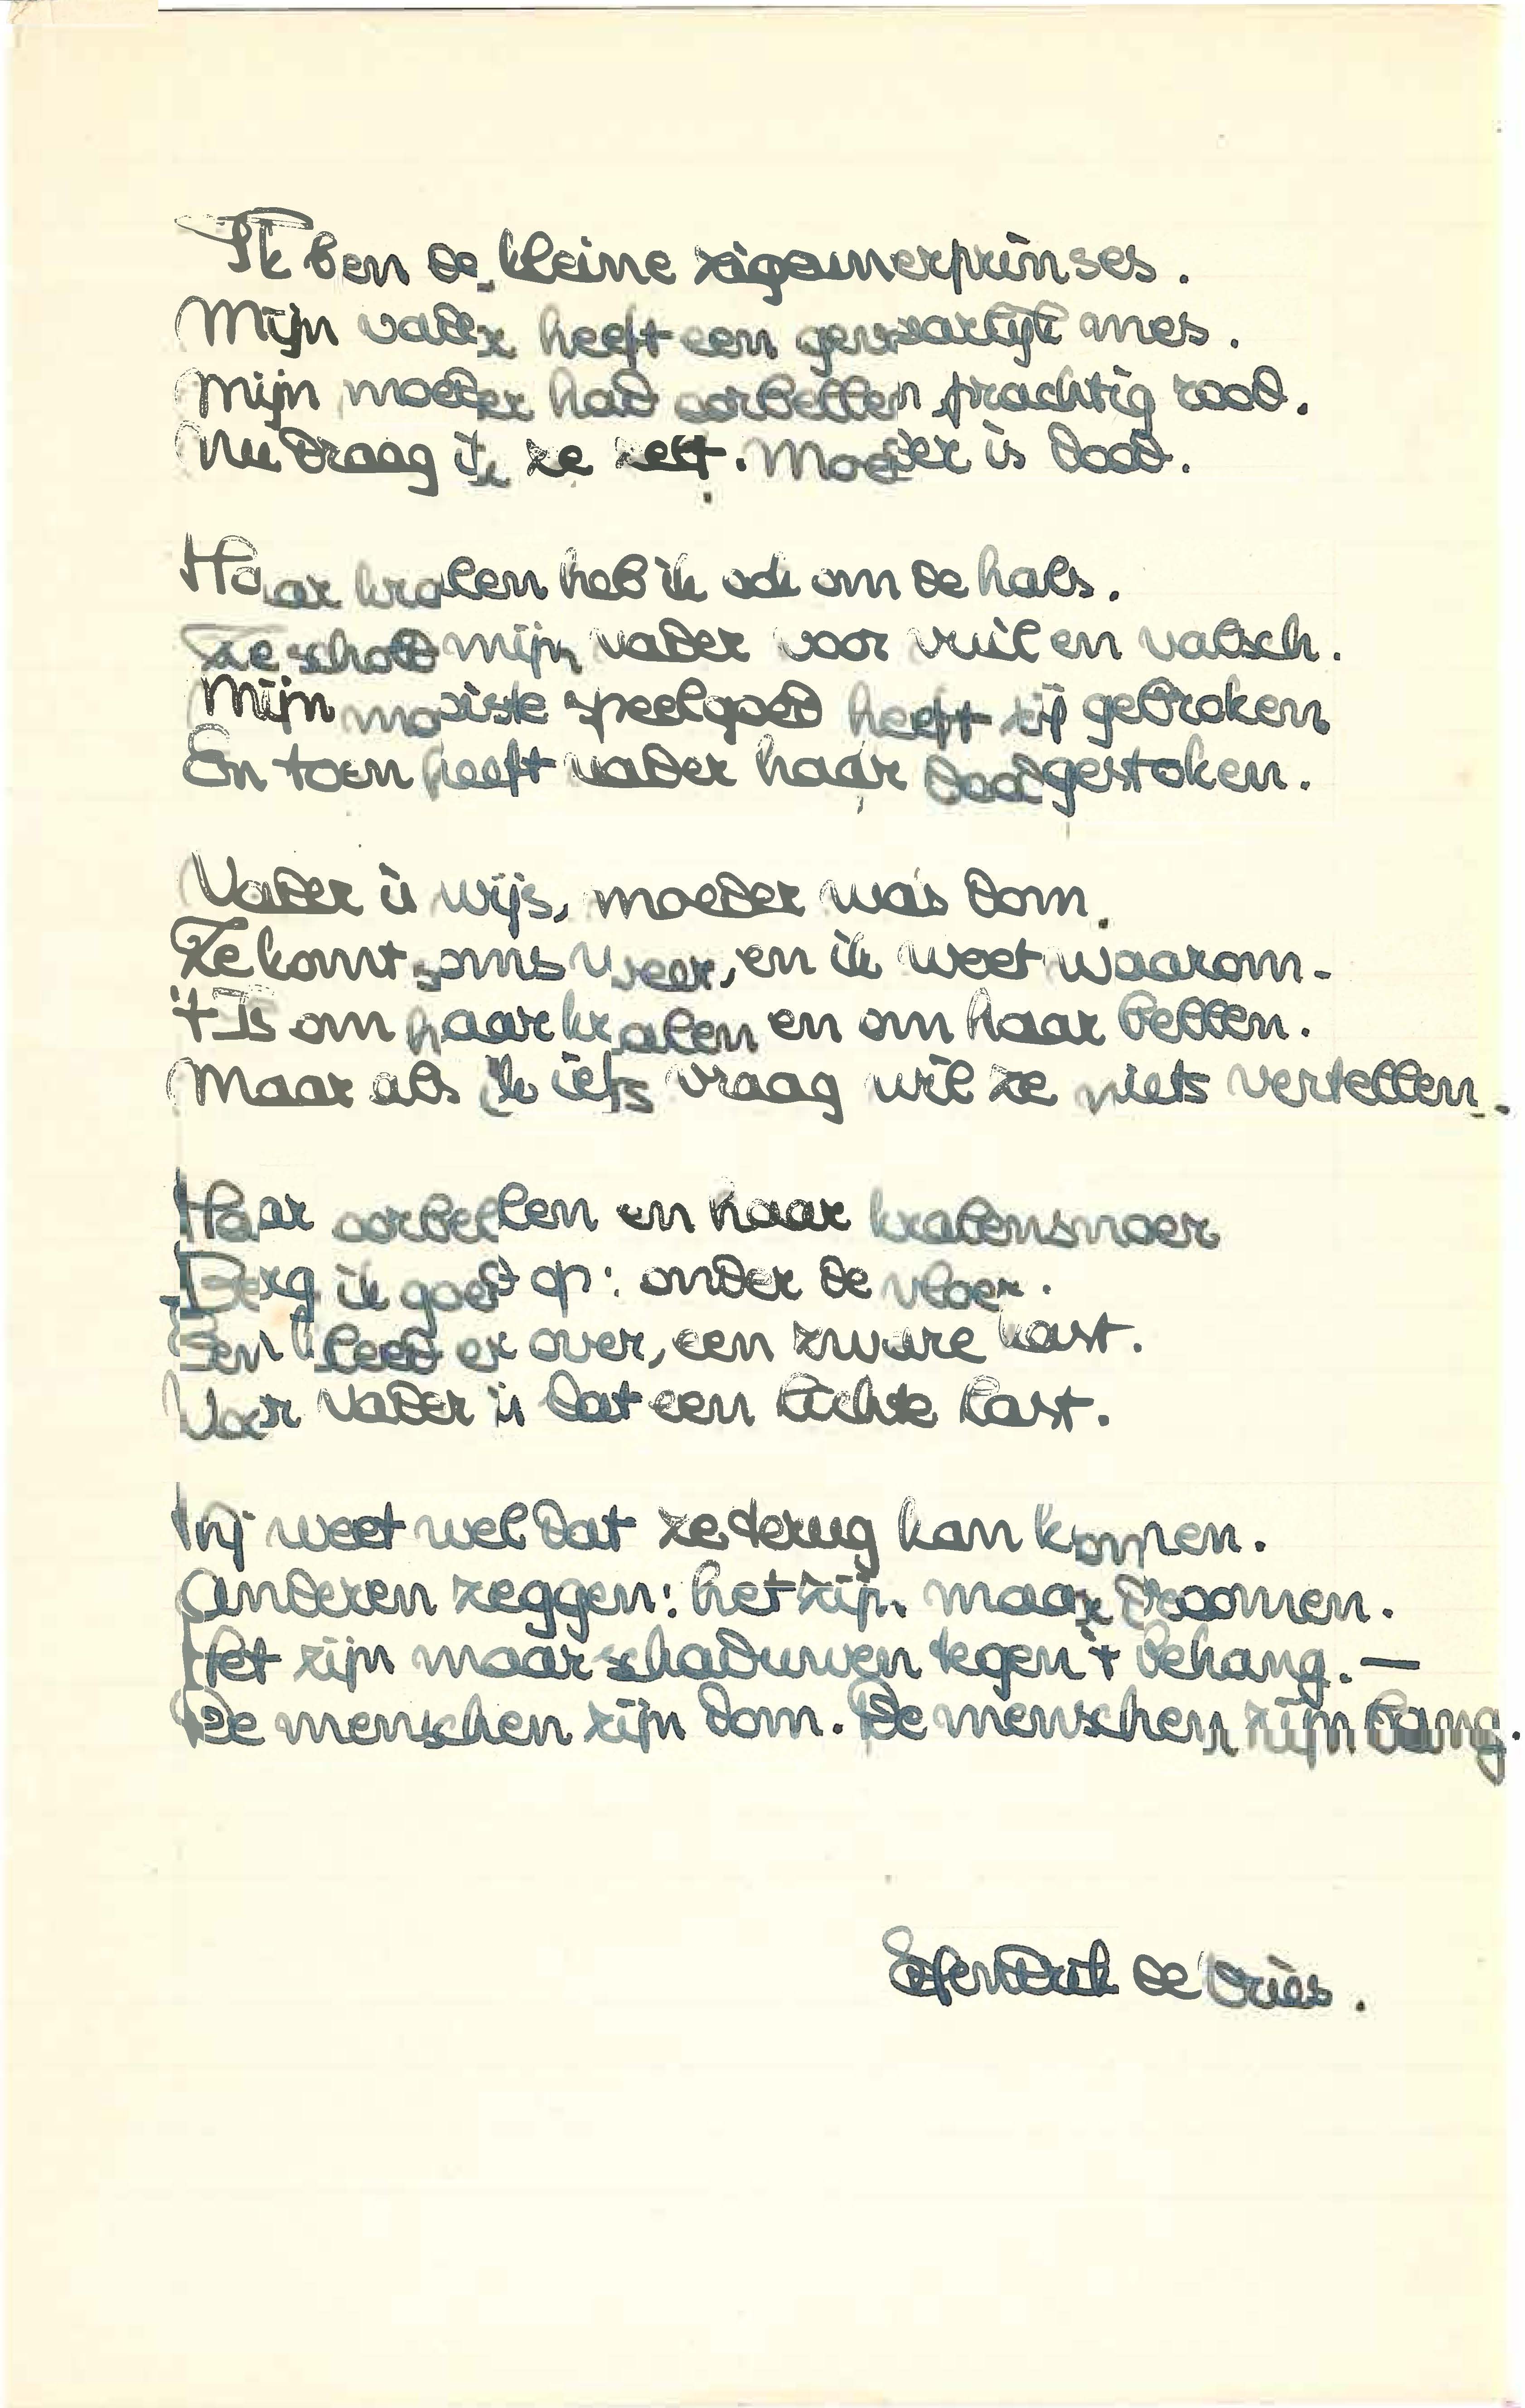 Ik ben de kleine zigeunerprinses.
Mijn vader heeft een gevaarlijk mes.
Mijn moeder had oorbellen prachtig rood.
Nu draag ik ze zelf. Moeder is dood.
Haar kralen heb ik ook om de hals.
Ze schold mijn vader voor vuil en valsch.
Mijn mooiste speelgoed heeft zij gebroken
En toen heeft vader haar doodgestoken.
Vader is wijs, moeder was dom.
Ze komt soms weer, en ik weet waarom.
't Is om haar kralen en om haar bellen.
Maar als ik iets vraag wil ze niets vertellen.
Haar oorbellen en haar kralensnoer
Berg ik goed op: onder de vloer.
Een kleed er over, een zware kast.
Voor vader is dat een lichte last.
Hij weet wel dat ze terug kan komen.
Anderen zeggen: het zijn maar droomen.
Het zijn maar schaduwen tegen 't behang. —
De menschen zijn dom. De menschen zijn bang.
Hendrik de Vries.